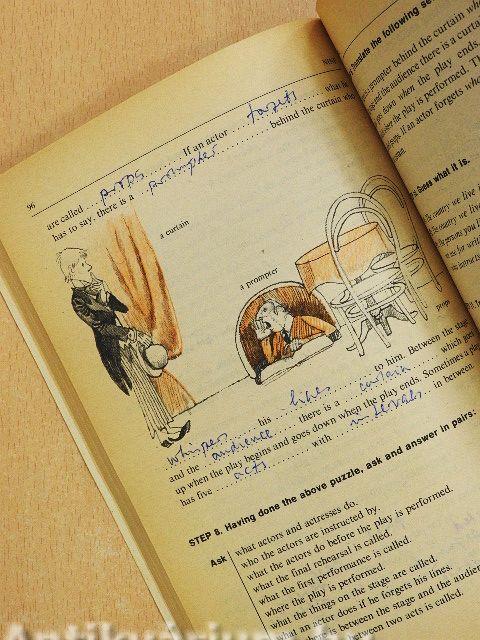 96
are called ... props ... If an actor ... forgets ... what he
has to say, there is a ... prompter ... behind the curtain who
a curtain
a prompter
props
... whispers ... his ... lines ... to him. Between the stage
and the ... audience ... there is a ... curtain ... which goes
up when the play begins and goes down when the play ends. Sometimes a play
has five ... acts ... with ... intervals ... in between.
STEP 8. Having done the above puzzle, ask and answer in pairs:
Ask what actors and actresses do.
who the actors are instructed by.
what the actors do before the play is performed.
what the final rehearsal is called.
what the first performance is called.
where the play is performed.
what the things on the stage are called.
what an actor does if he forgets his lines.
is between the stage and the
between two acts is called.
the following
prompter behind the curtain
the audience there is a
down when the play ends.
the play is performed.
If an actor forgets
Guess what it is.
the country we live
the country we live